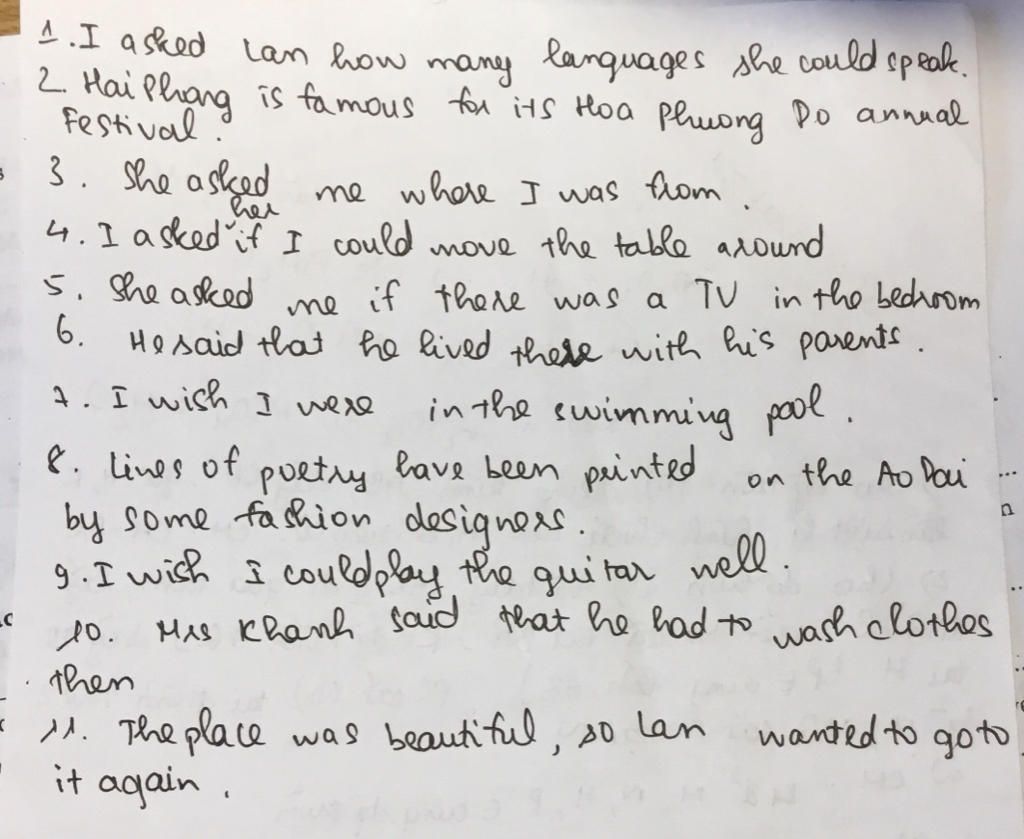 1. I asked Lan how many languages she could speak.
2. Hai Phong is famous for its Hoa Phuong Do annual
Festival.
3. She asked me where I was from.
her
4. I asked if I could move the table around
5. She asked me if there was a TV in the bedroom
6. He said that he lived there with his parents.
7. I wish I were in the swimming pool.
8. Lines of poetry have been printed on the Ao Dai
by some fashion designers.
9. I wish I could play the guitar well.
10. Mrs Khanh said that he had to wash clothes
then
11. The place was beautiful, so Lan wanted to go to
it again.